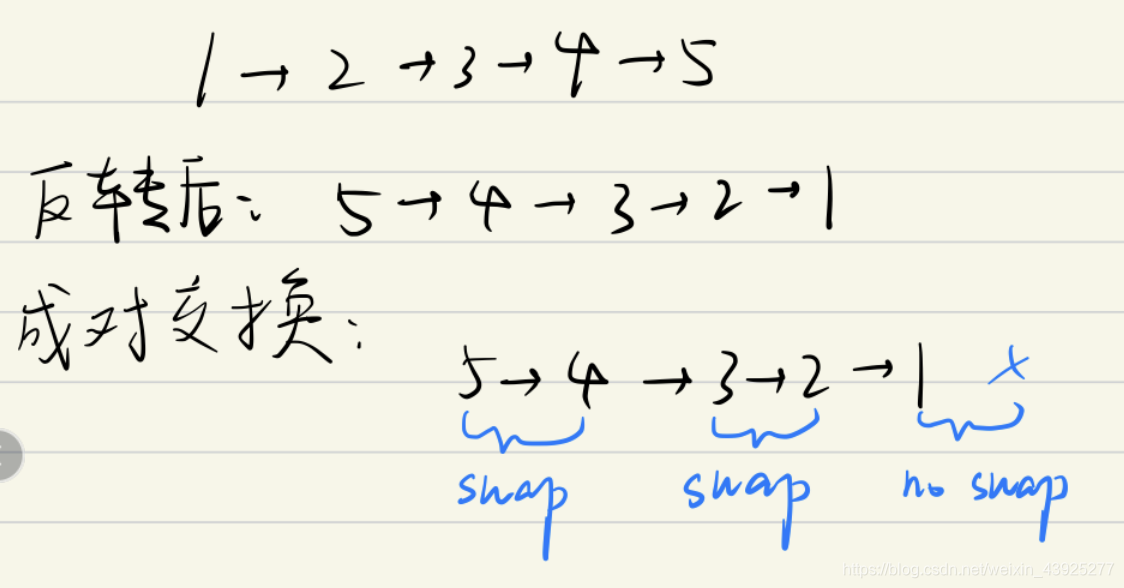 1 → 2 → 3 → 4 → 5
反转后: 5 → 4 → 3 → 2 → 1
成对交换:
5 → 4 → 3 → 2 → 1 x
swap swap no swap
https://blog.csdn.net/weixin_43925277